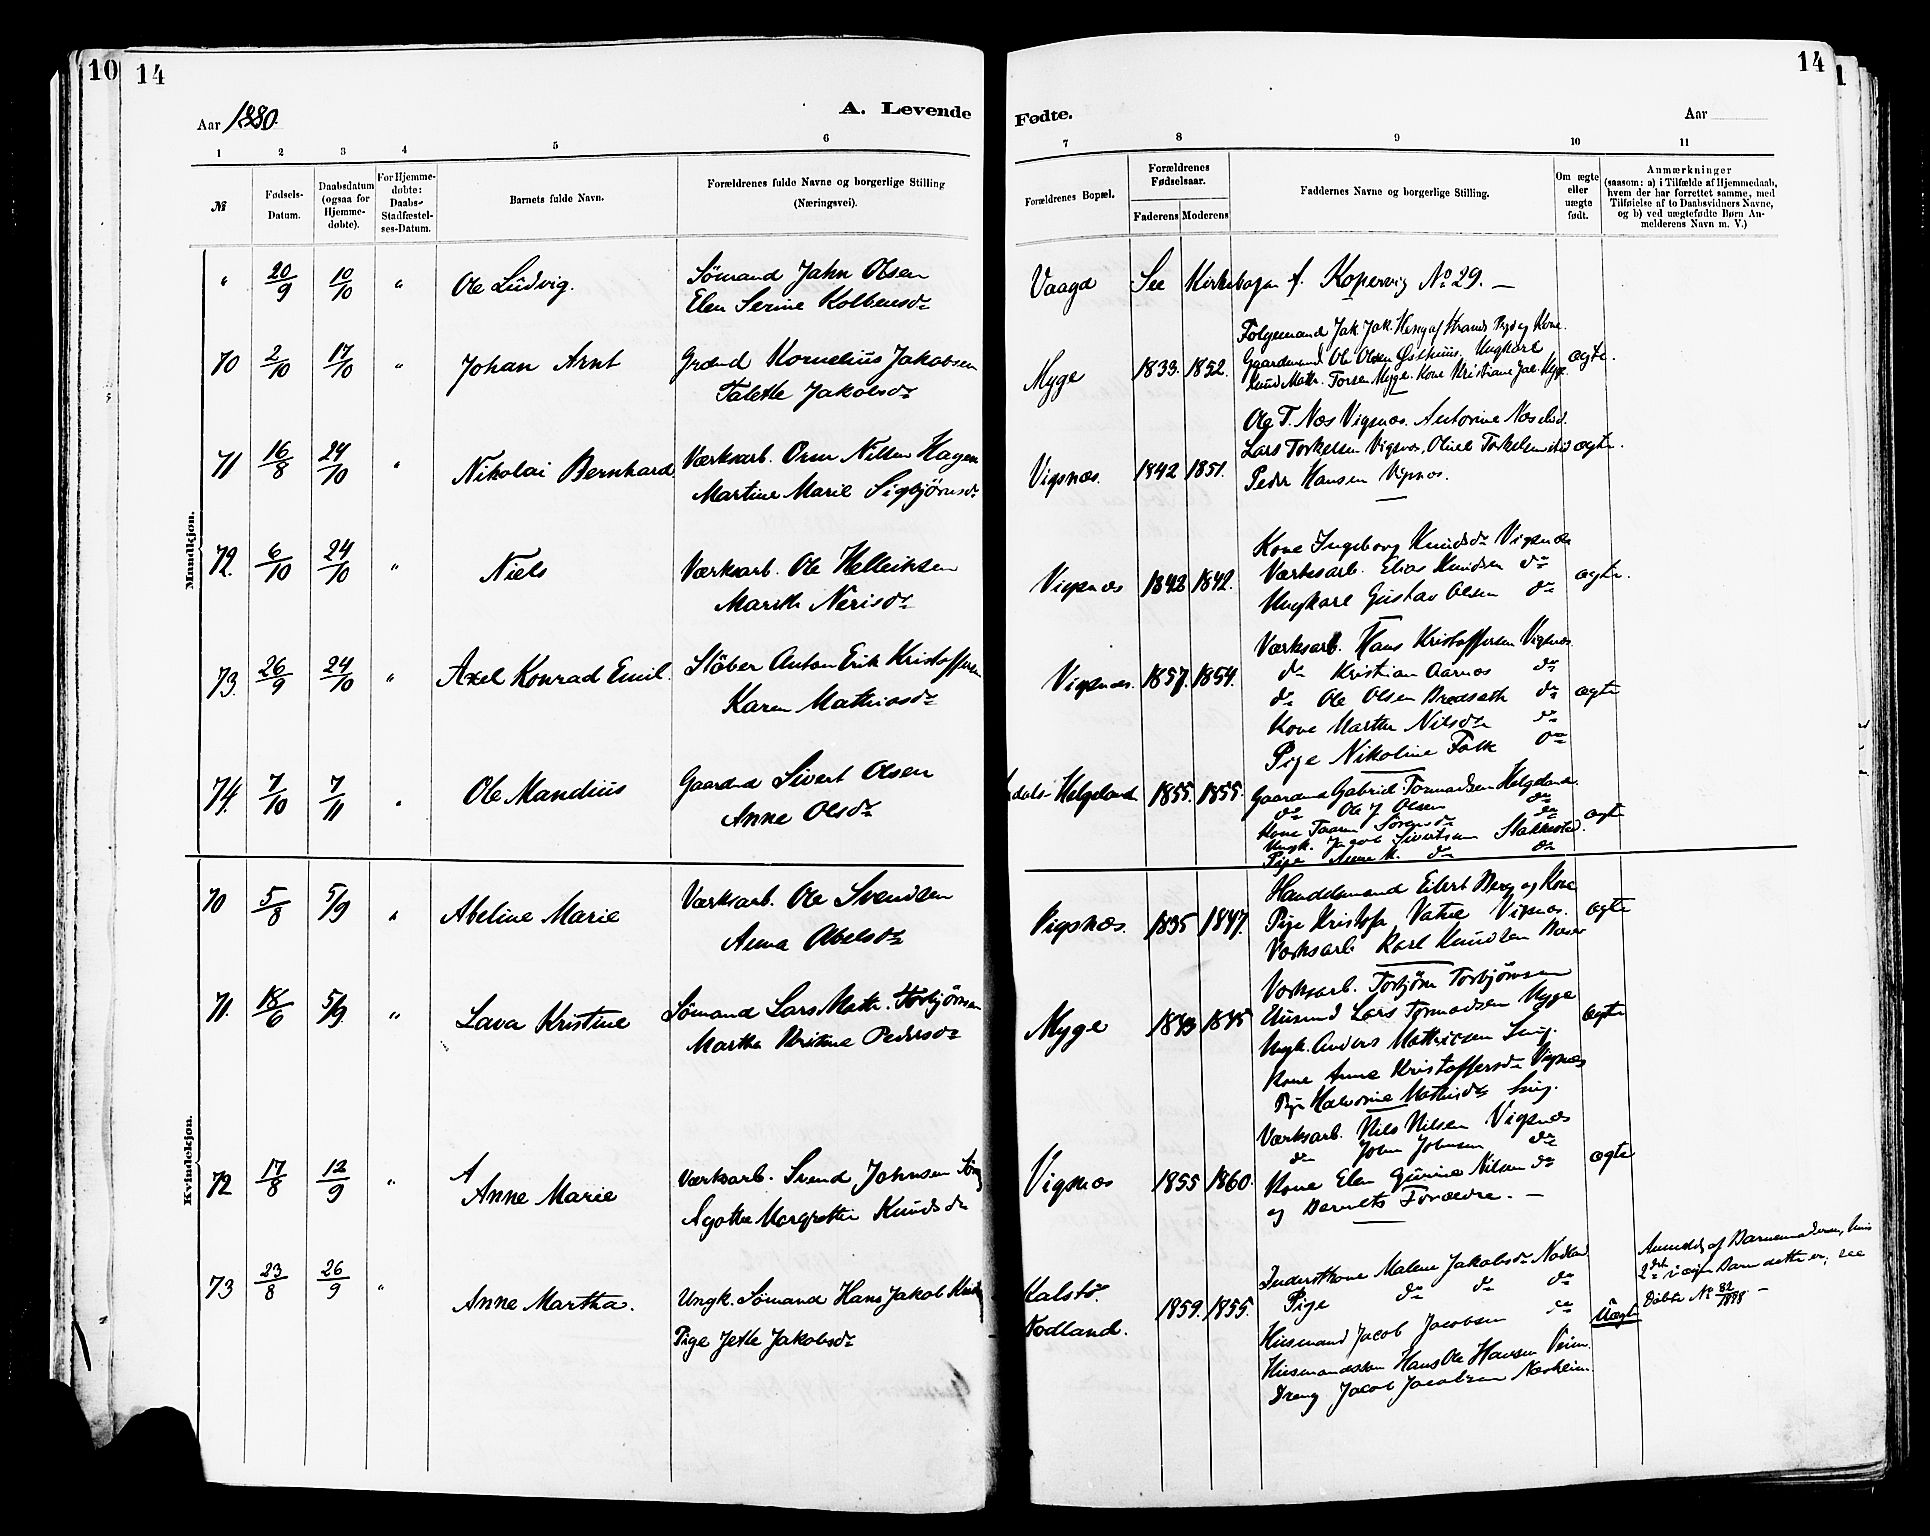 10 14
14
1
Aar 1880.
A. Levende
Fødte.
Aar
1 2 3 4 5 6
7 8 9 10 11
№
Fødsels-
Datum.
Daabsdatum
(ogsaa for
Hjemme-
døbte).
For Hjemme-
døbte:
Daabs-
Stadfæstel-
ses-Datum.
Barnets fulde Navn.
Forældrenes fulde Navne og borgerlige Stilling
(Næringsvei).
Forældrenes Bopæl.
Forældrenes
Fødselsaar.
Faderens Moderens
Faddernes Navne og borgerlige Stilling.
Om ægte
eller
uægte
født.
Anmærkninger
(saasom: a) i Tilfælde af Hjemmedaab,
hvem der har forrettet samme, med
Tilføielse af to Daabsvidners Navne,
og b) ved uægtefødte Børn An-
melderens Navn m. V.)
Mandkjøn.
" 20/9 10/10 " Ole Ludvig.
Sømand Jahn Olsen
Elen Serine Kolbensdr
Vaagd See Kirkebogen f. Kopervig No 29. —
70 2/10 17/10 " Johan Arnt
Grdmd Kornelius Jakobsen
Talette Jakobsdr
Myge 1833. 1852. ægte.
Gaardmand Ole Olsen Ungkarl
71 16/8 24/10 " Nikolai Bernhard
Værksarb. Orm Nilsen Hagen
Martine Marie Sigbjørnsdr
Vigsnæs. 1842 1851. ægte.
Lars Torkelsen Vigsnæs,
Peder Hansen Vigsnæs.
72. 6/10 24/10 " Niels
Værksarb. Ole Helleiksen
Marthe Nerisdr
Vigsnæs 1842 1842. ægte.
Kone Ingeborg Knudsdr Vigsnæs
Værksarb. Elias Knudsen do
Ungkarl Gustav Olsen do
73. 26/9 24/10 " Axel Konrad Emil.
Støber Anton Erik Kristoffersen
Karen Mathiasdr
Vigsnæs. 1857. 1854. ægte
Værksarb. Hans Kristoffersen Vigsnæs
do Kristian Aarnes do
do Ole Olsen Bredsæth do
Kone Marthe Nilsdr do
Pige Nikoline Falk do
74. 7/10 7/11 " Ole Mandius
Gaardmd Sivert Olsen
Anne Olsdr
Helgeland 1855. 1855. ægte
Gaardmd Gabriel Tormodsen Helgeland
do Ole J Olsen do
Kone Taaran Sørensdr do
Ungk. Jacob Sivertsen Stakkestad.
Pige Anne M. do do
Kvindekjøn.
70 5/8 5/9 " Abeline Marie
Værksarb. Ole Svendsen
Anna Abelsdr
Vigsnæs. 1835 1847. ægte
Handelsmand Eilert Berg og Kone
Pige Kristofa Vatne Vigsnæs.
Værksarb. Karl Knudsen
71. 18/6 5/9. " Lava Kristine
Sømand Lars Math. Torbjørnsen
Martha Kristine Pedersdr
Myge 1843 1845 ægte
Værksarb. Torbjørn Torbjørnsen
Husmd Lars Tormodsen Myge
Ungk. Anders Mathiesen
Kone Anne Kristoffersdr Vigsnæs
Pige Halvorine Mathisdr
72 17/8 12/9 " Anne Marie
Værksarb. Svend Johnsen
Agathe Margrethe Knudsdr
Vigsnæs 1855 1860. ægte
Værksarb. Nils Nilsen Vigsnæs
do John Johnsen do
Kone Elen Gurine Nilsen do
og Barnets Forældre. —
73 23/8 26/9 " Anne Martha.
Ungk. Sømand Hans Jakob
Pige Jette Jakobsdr
Kalstø.
Nodland. 1859. 1855. Uægte
Inderstkone Malene Jakobsdr Nodland
Pige do do do
Husmand Jacob Jacobsen do
Husmandssøn Hans Ole Hansen
Dreng Jacob Jacobsen Næsheim.
Anmeldt af Barnemoderen, hvis
2det uægte Barn dette er; see
Døbte No 82/1878 —